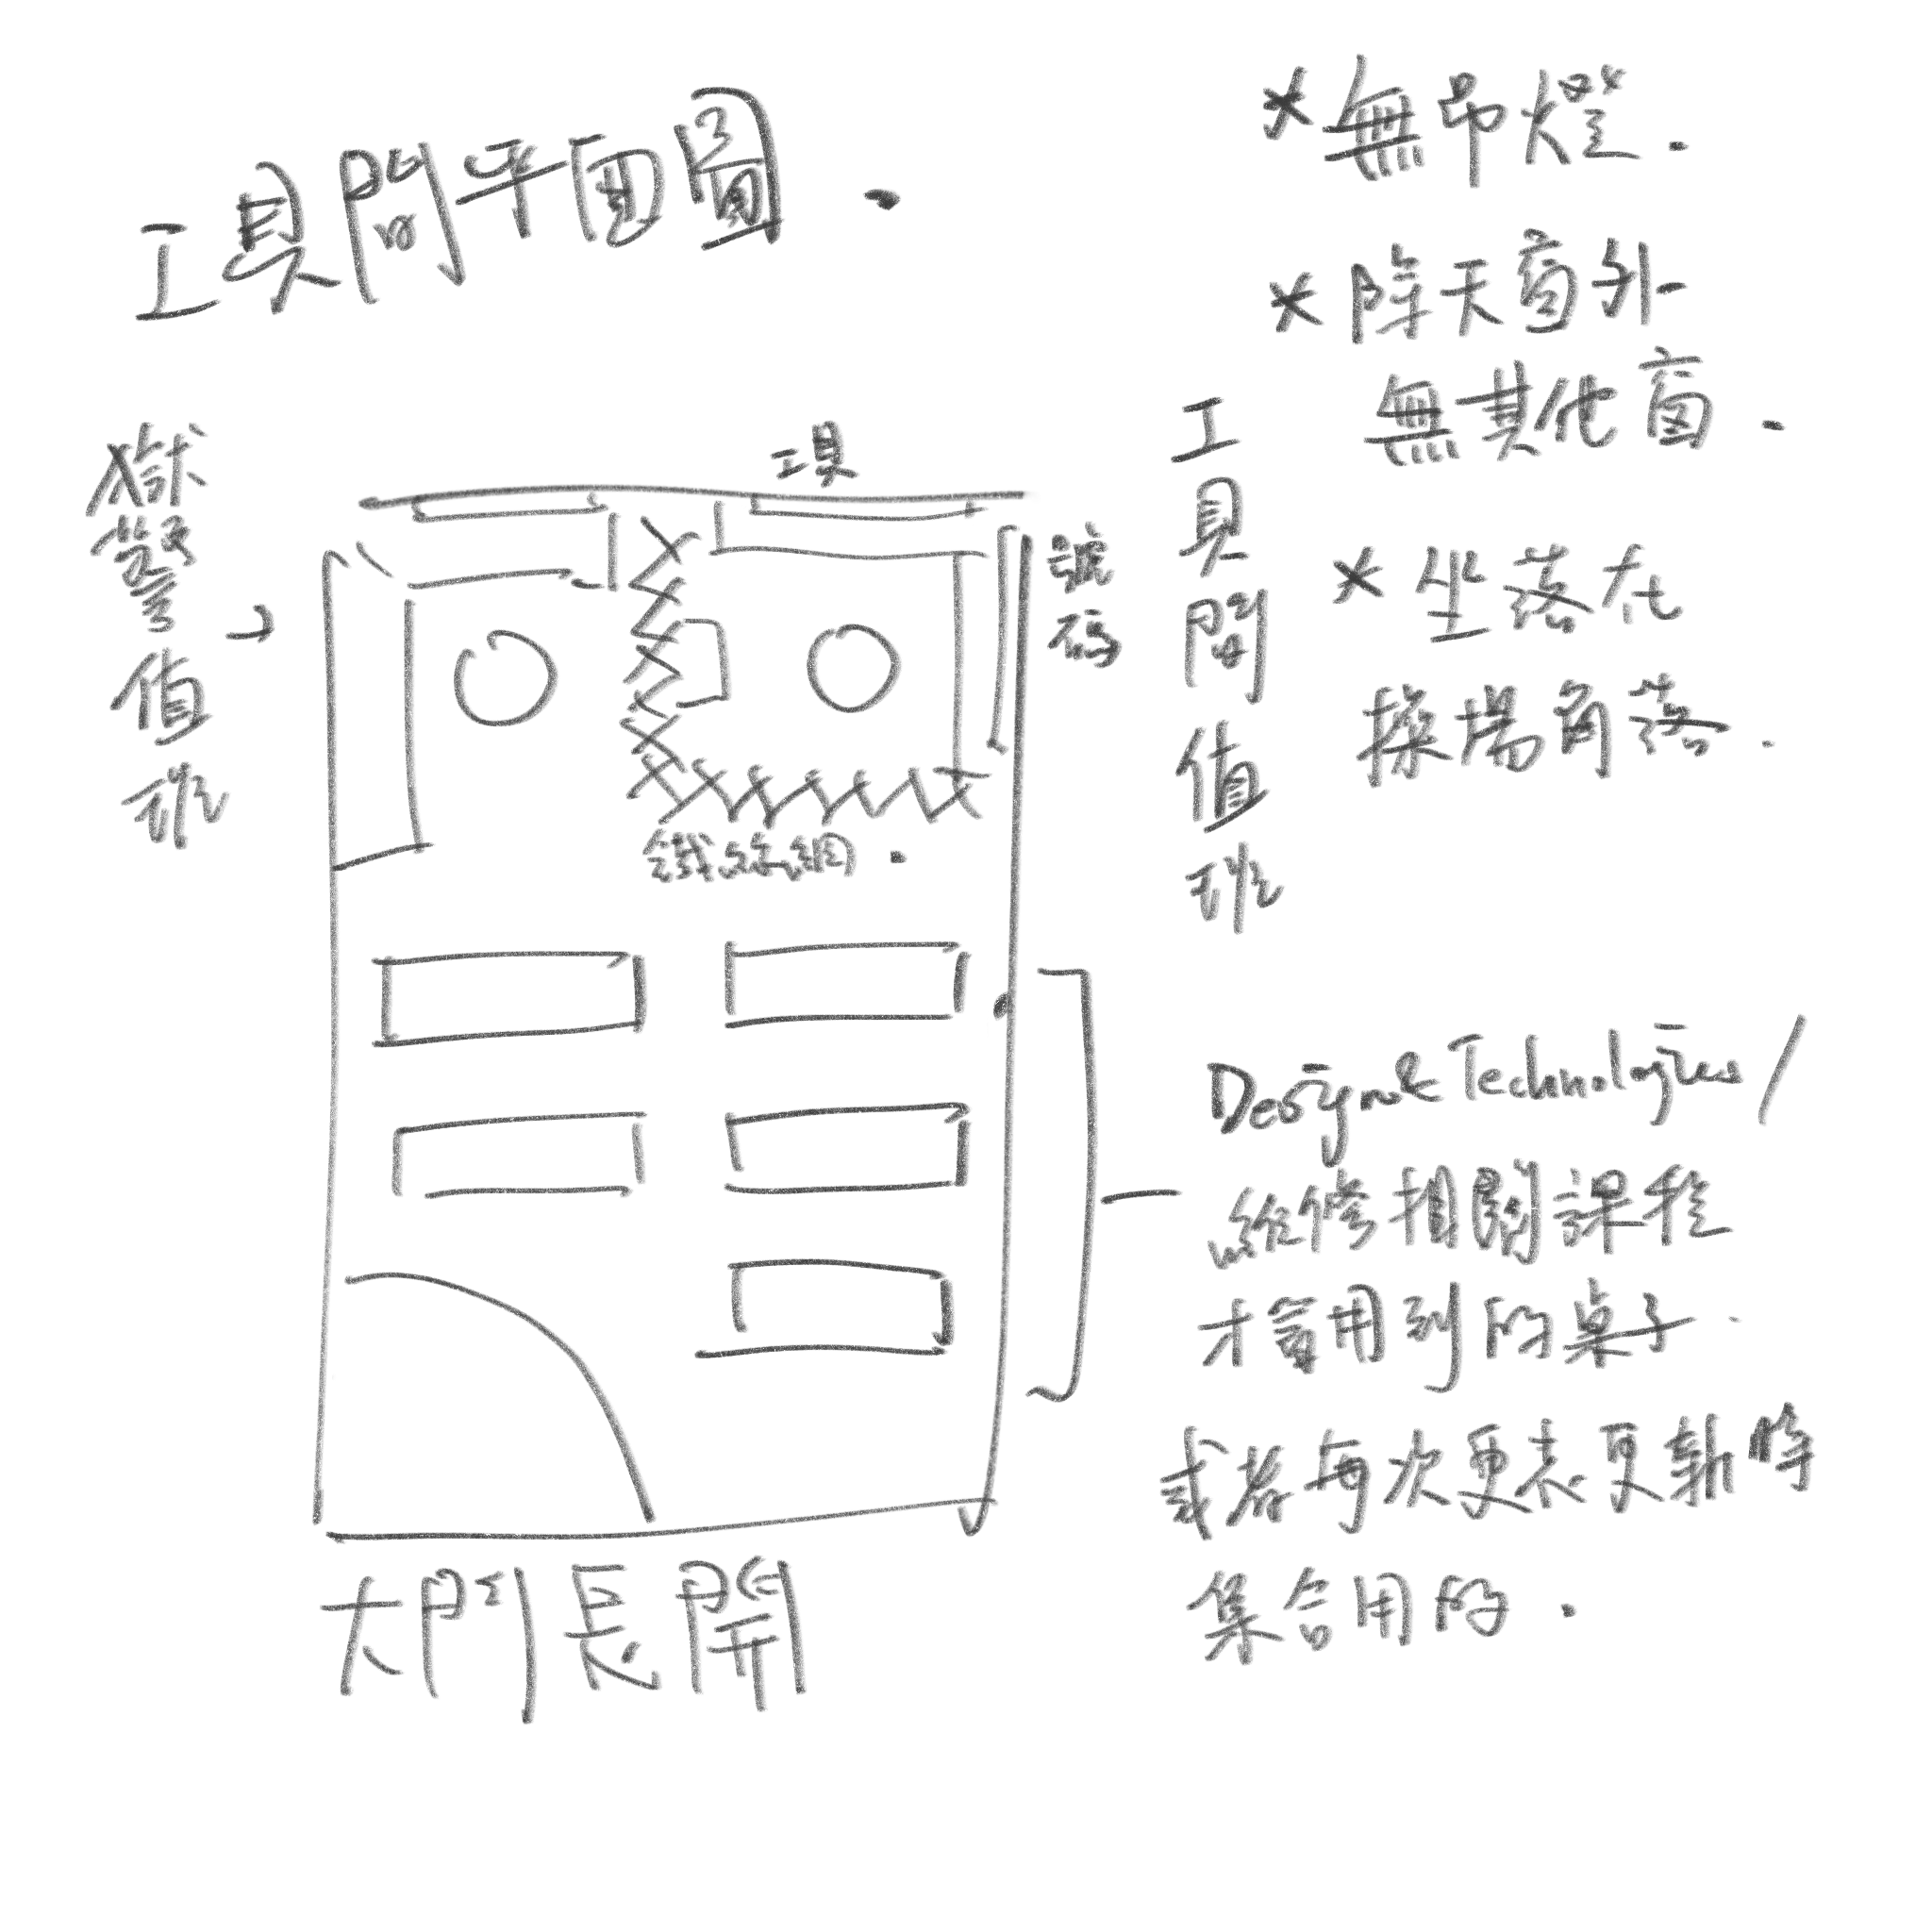 工具間平面圖.
*無吊燈.
*除天窗外
無其他窗.
*坐落在
操場角落.
獄警值班
工具
號碼
工具間值班
鐵絲網.
Design & Technologies /
維修相關課程
才會用到的桌子.
或者每次更表更新時
集合用的.
大門長開